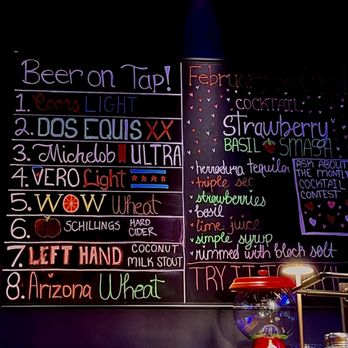 Beer on Tap!
1. Coors LIGHT
2. DOS EQUIS XX
3. Michelob ULTRA
4. VERO Light
5. WOW Wheat
6. SCHILLINGS HARD CIDER
7. LEFT HAND COCONUT MILK STOUT
8. Arizona Wheat
February
COCKTAIL
Strawberry
BASIL SMASH
herradura tequila
triple sec
strawberries
basil
lime juice
simple syrup
rimmed with black salt
TRY IT
ASK ABOUT
THE MONTHLY
COCKTAIL
CONTEST!